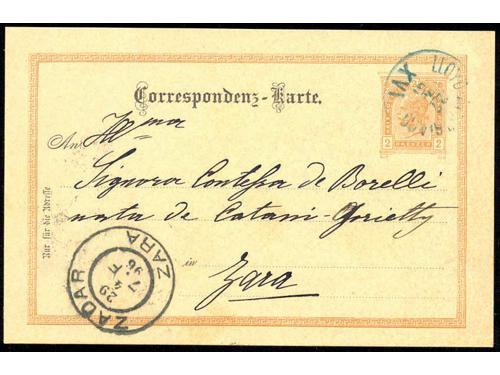 LLOYD
XVI
Correspondenz-Karte.
2 2
An Ill ma
Signora Contessa de Borelli
nata de Catani-
in Zara
Nur für die Adresse
ZARA
29
7
96
ZADAR